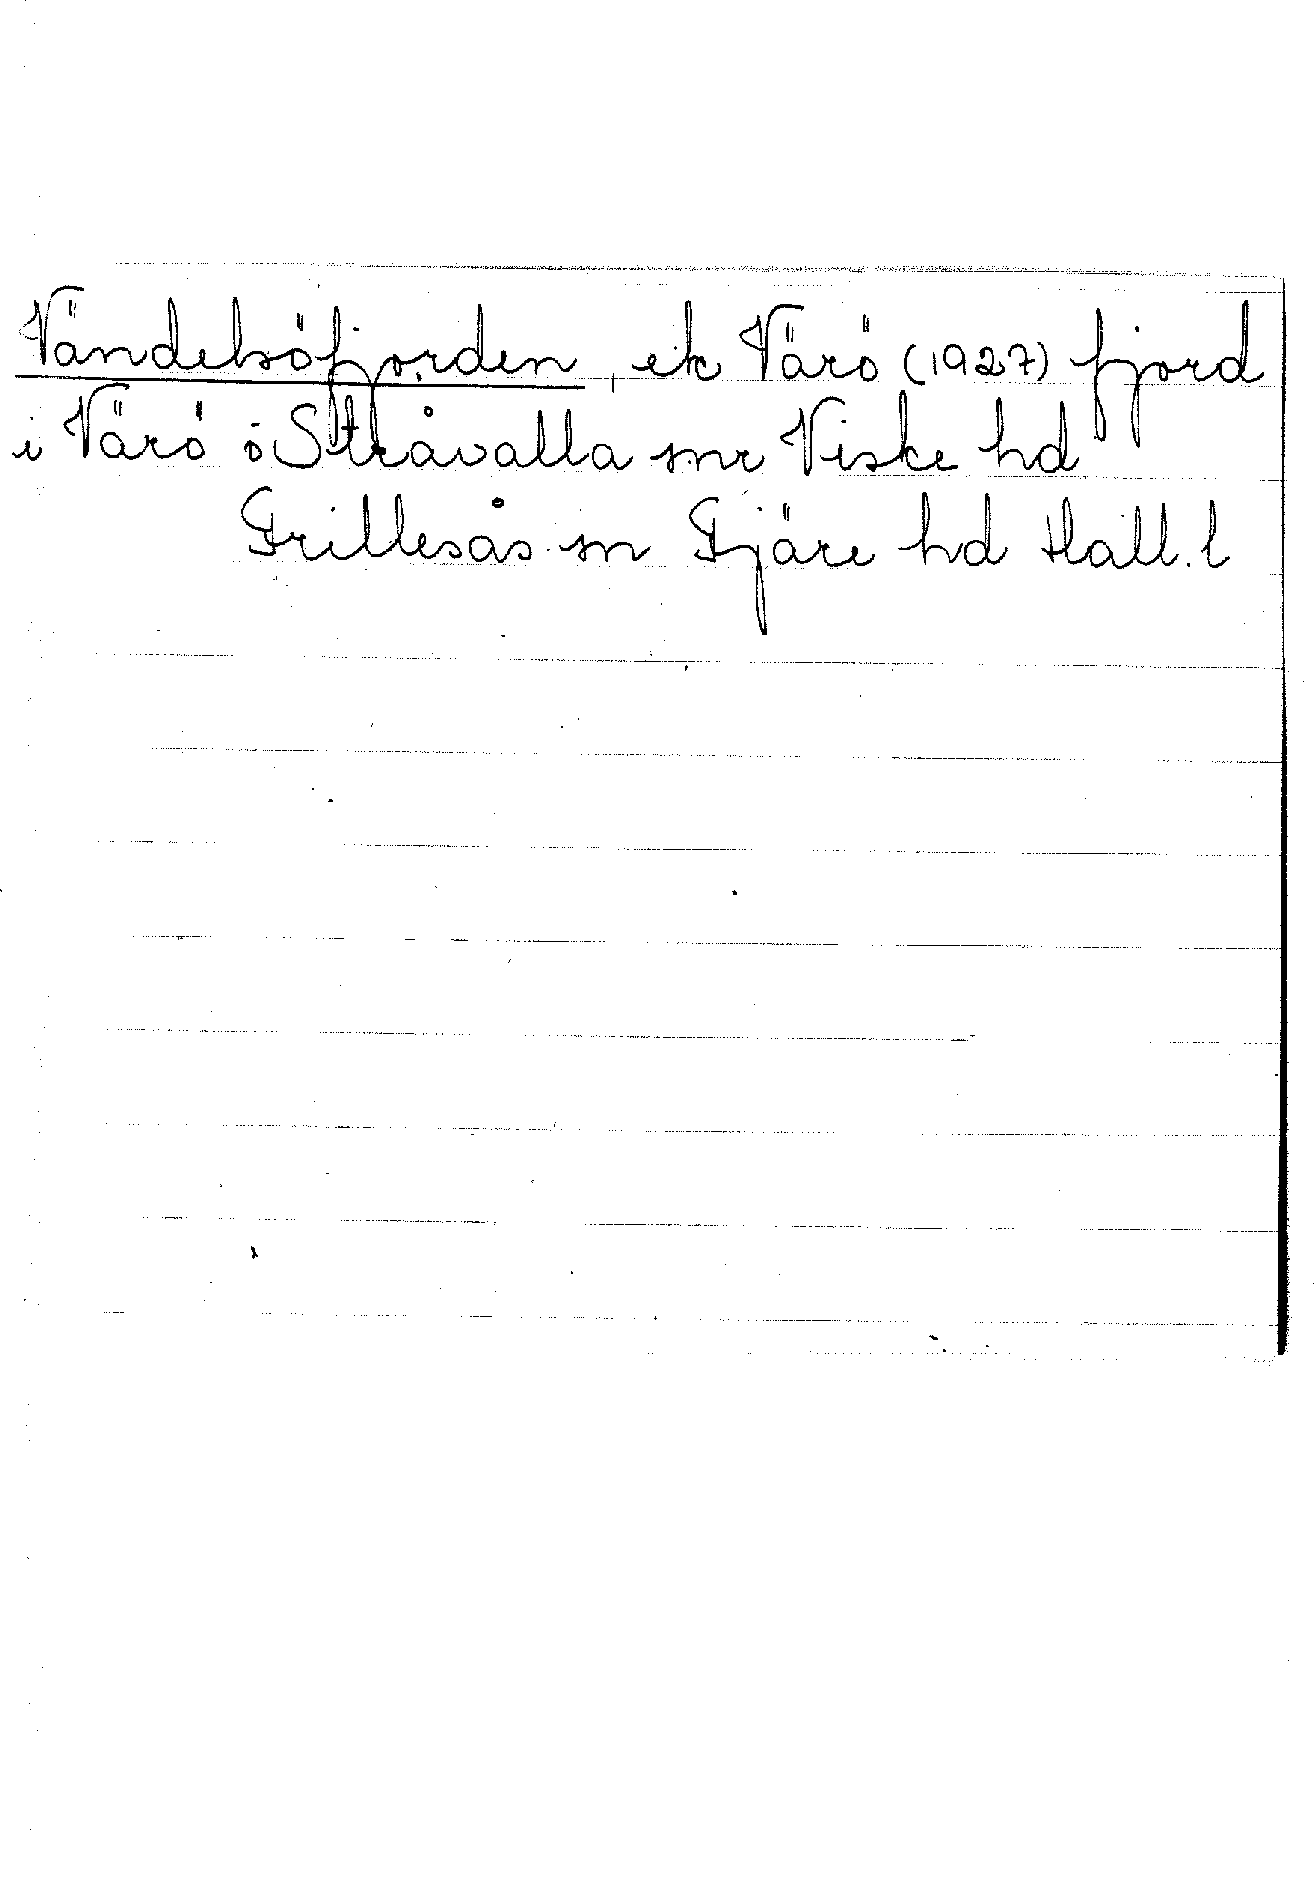 Vändelsöfjorden, ek Värö (1927) fjord
i Värö o Stråvalla snr Viske hd
Frillesås sn Fjäre hd Hall. l